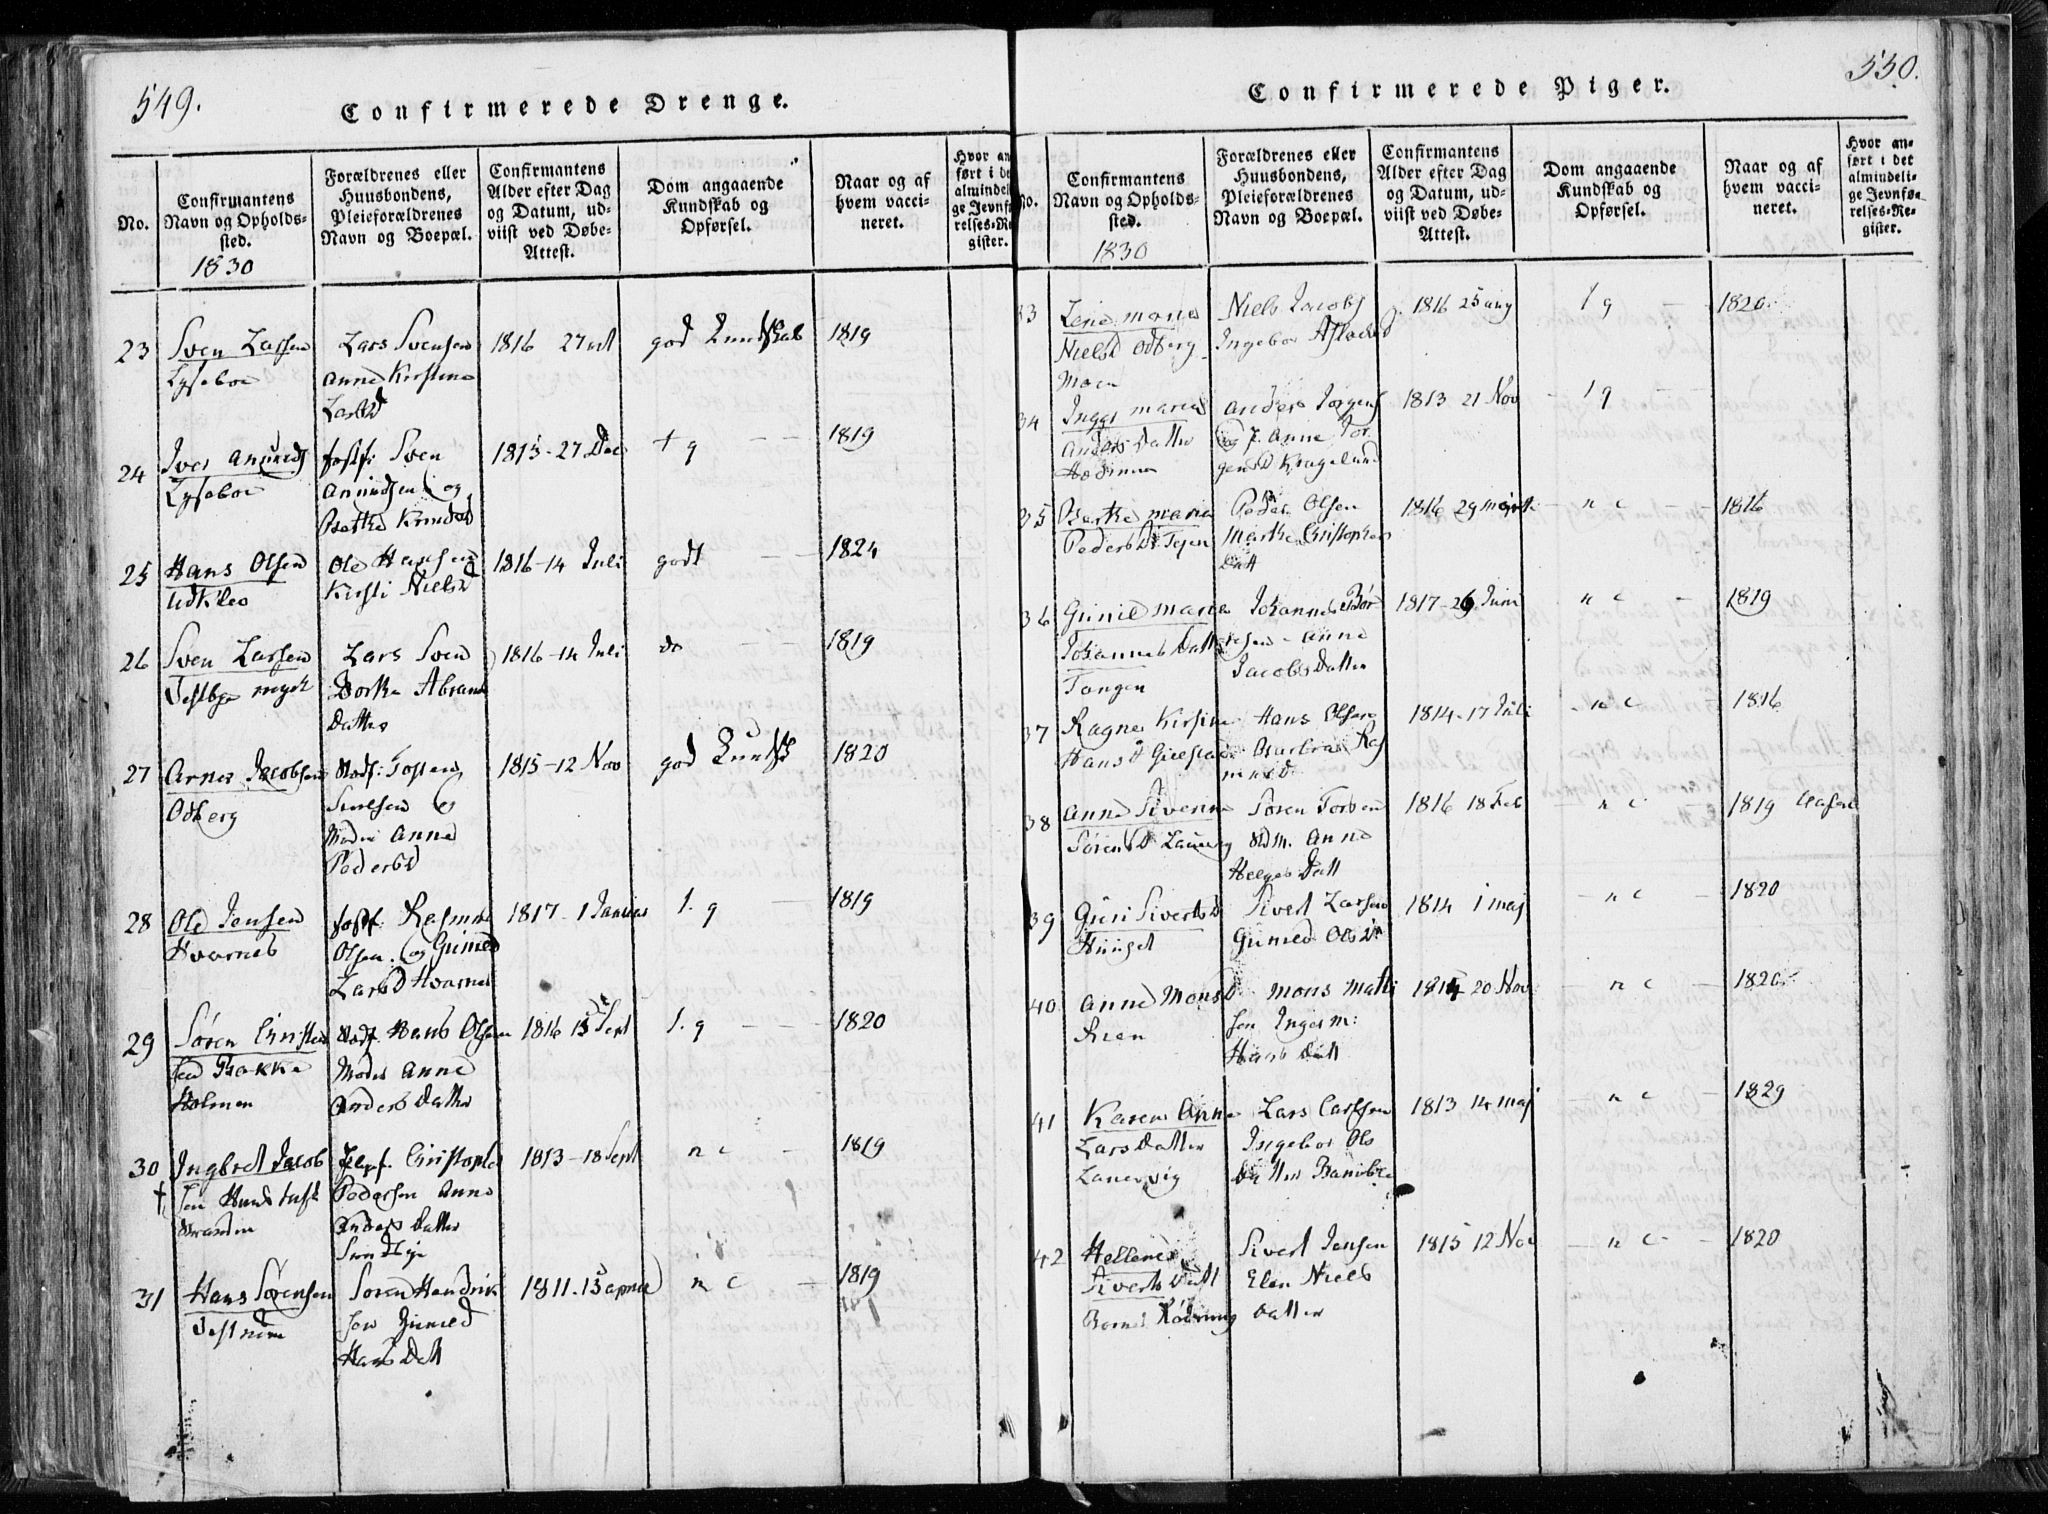 549.
Confirmerede Drenge.
No.
Confirmantens
Navn og Opholds-
sted.
1830
Forældrenes eller
Huusbondens,
Pleieforældrenes
Navn og Boepæl.
Confirmantens
Alder efter Dag
og Datum, ud-
viist ved Døbe-
Attest.
Dom angaaende
Kundskab og
Opførsel.
Naar og af
hvem vacci-
neret.
Hvor an-
ført i det
almindeli-
ge Jevnfø-
relses-Re-
gister.
23
Sven Larsen
Lyseboe
Lars Svensen
Anne Kirstine
LarsD
1816 27
god Kundskab
1819
24
Iver Amunds
Lyseboe
fostf: Sven
Amundsen og
Berthe
1815-27 Dec
g
1819
25
Hans Olsen
Ole Hansen
Kirsti NielsD
1816-14 Juli
godt
1824
26
Sven Larsen
Lars Sven
Dorthe Abrams
Datter
1816-14 Juli
do
1819
27
Arne Jacobsen
Odberg
Stedf:
og
Moder Anne
PedersD
1815-12 Nov
god Kundsk
1820
28
Ole Jensen
Hvarnes
fostf. Rasmus
Olsen og Gunild
LarsD Hvarnes
1817-1 Januar
1. g
1819
29
Søren Christen
sen Bakke
Holmen
Stedf. Hans Olsen
Moder Anne
Anders Datter
1816 15 Sept
1. g
1820
30
†
Ingbret Jacob
sen
Stranden
Christopher
Pedersen Anne
Anders Datter
1813-18 Sept
n c
1819
31
Hans Sørensen
Soren Hendrik
sen Gunild
Hans Datt
1811-15 april
n c
1819
550.
Confirmerede Piger.
No.
Confirmantens
Navn og Opholds-
sted.
1830
Forældrenes eller
Huusbondens,
Pleieforældrenes
Navn og Boepæl.
Confirmantens
Alder efter Dag
og Datum, ud-
viist ved Døbe-
Attest.
Dom angaaende
Kundskab og
Opførsel.
Naar og af
hvem vacci-
neret.
Hvor an-
ført i det
almindeli-
ge Jevnfø-
relses-Re-
gister.
33
Lene Marie
NielsD Odberg
Moen
Niels Jacobs
Ingebor AslacsD
1816 25 aug
1 g
1820
34
Inger Maria
Anders Datter
Anders Jørgens
og Anne Jør
gensD Kragelund
1813 21 Nov
1 g
35
Berthe Maria
PedersD Tejen
Peder Olsen
Marthe Christophers
Datt
1816 29 Marts
n c
1816
36
Gunild Marie
Johannes Datt
Tangen
Johannes Bør
resen Anne
Jacobs Datter
1817-26 Juni
n c
1819
37
Ragne Kirstine
HansD
Hans Olsen
Barbra Ras
musD
1814-17 Juli
n c
1816
38
Anne Siverine
SørensD Lauervig
Søren Torben
Anne
Helges Datt
1816 18 Feb
n c
1819
39
Guri SivertsD
Sivert Larsen
Gunild OlsD
1814 1 maj
n c
1820
40
Anne MonsD
Mons Matti
sen Inger M:
Hans Datt
1814 20 Nov
n c
1820
41
Karen Anne
Lars Datter
Lauervig
Lars Carlsen
Ingebor Ols
Datter
1813 14 maj
n c
1829
42
Hellene
Siverts Datt
Sivert Jensen
Elen Niels
Datter
1815 12 Nov
n c
1820